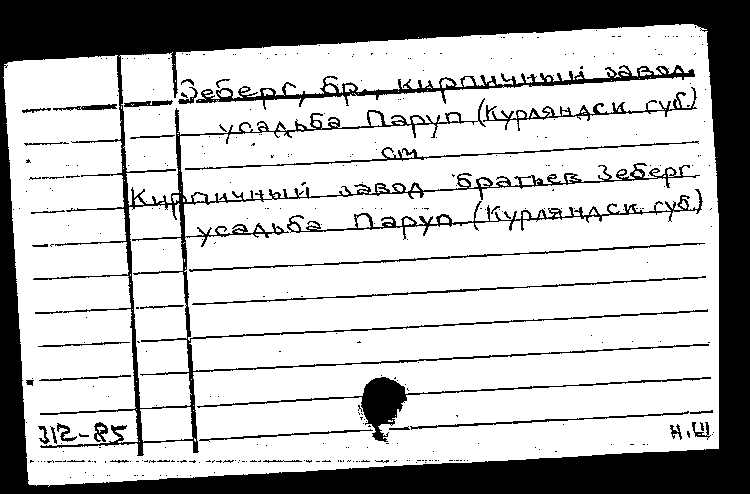 Зеберг, бр., кирпичный завод.
усадьба Паруп (Курляндск. губ.)
см.
Кирпичный завод братьев Зеберг.
усадьба Паруп (Курляндск. губ.)
312-85
Н.Ш